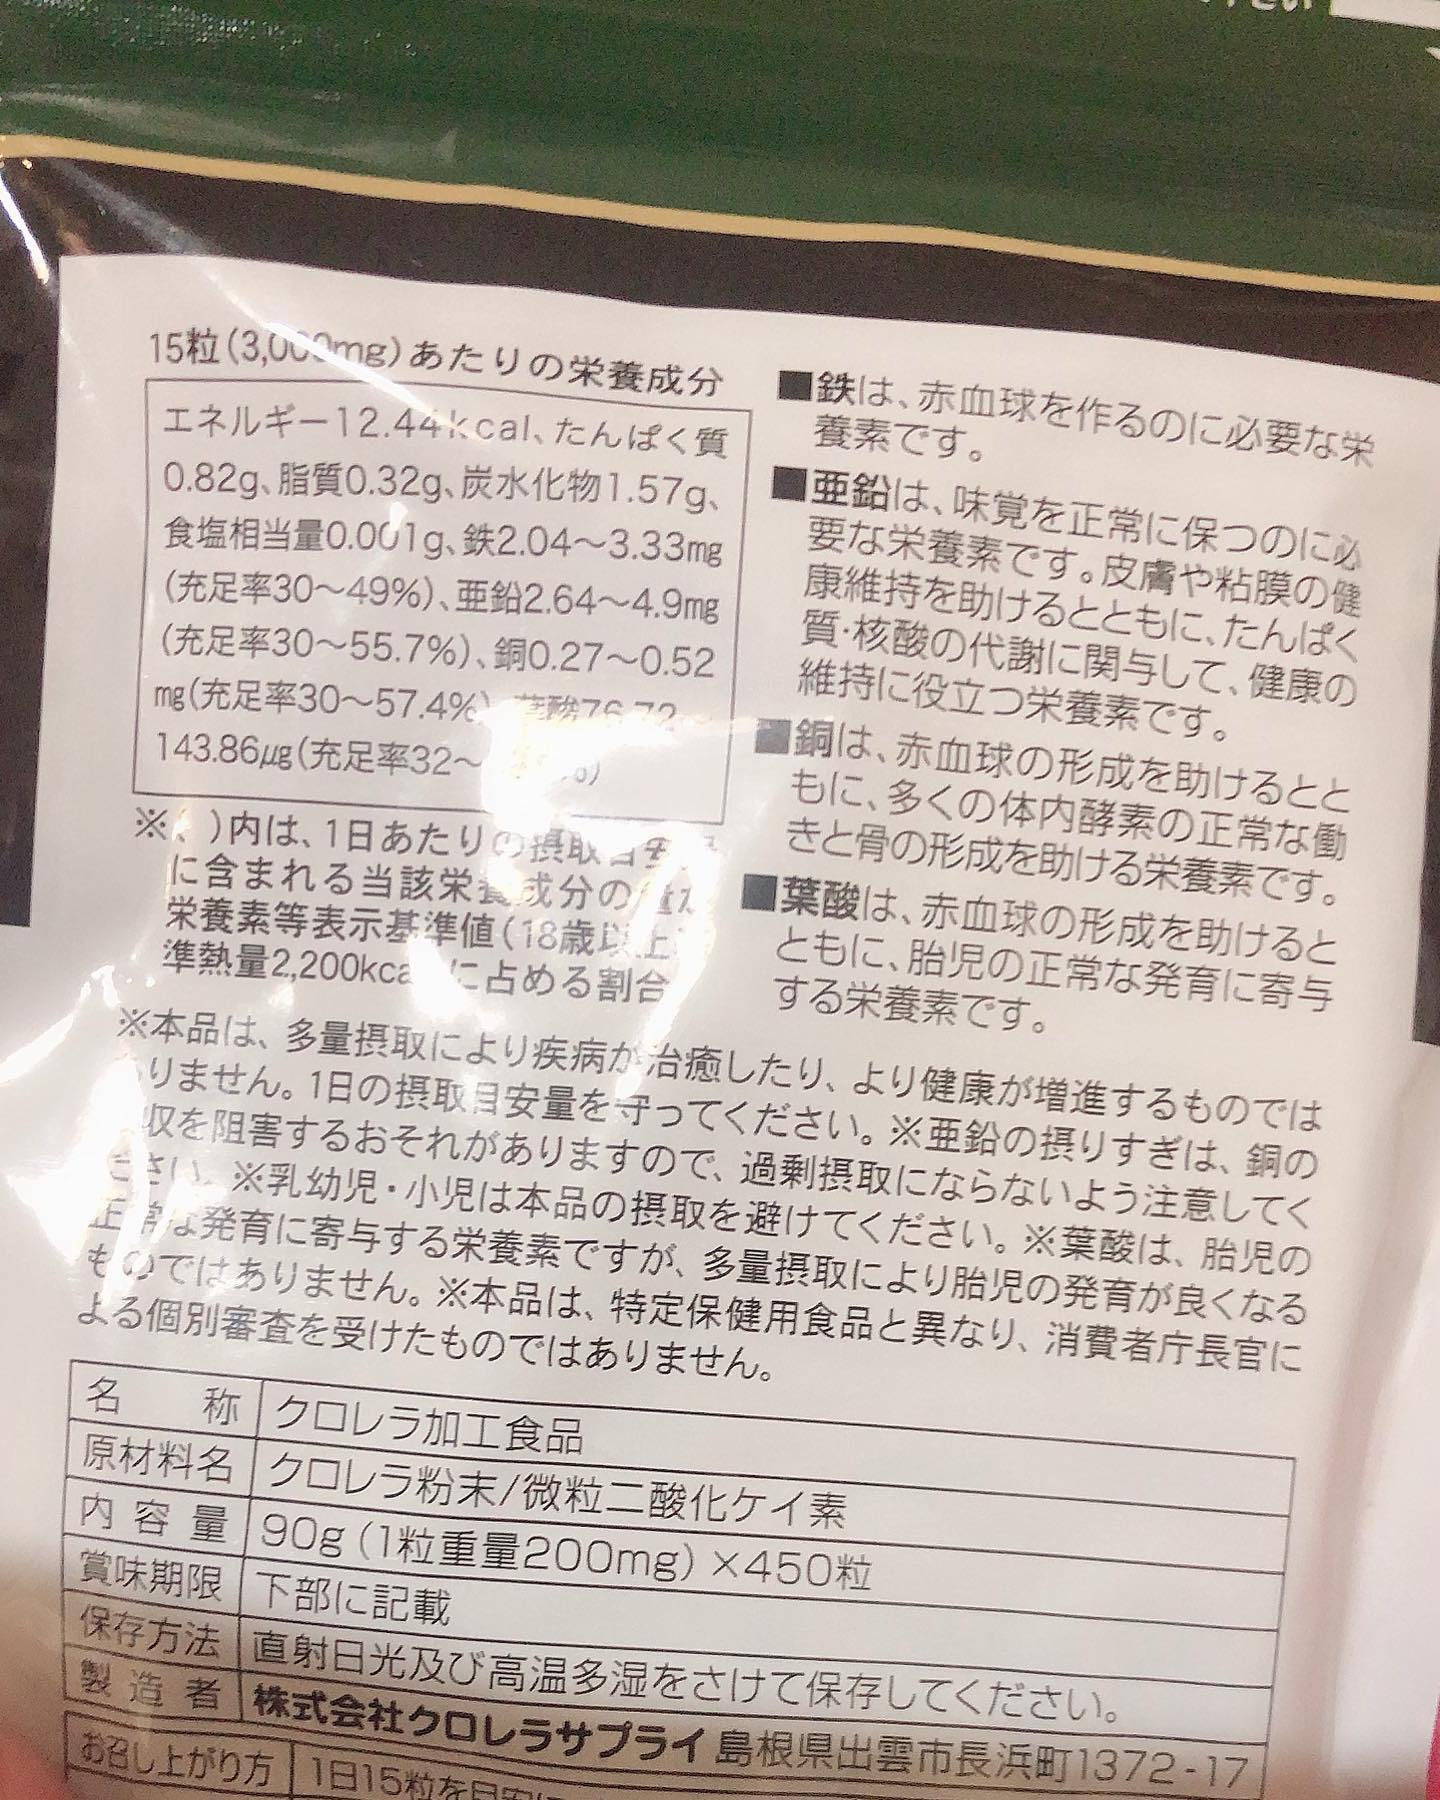 15粒(3,000mg)あたりの栄養成分
エネルギー12.44kcal、たんぱく質
0.82g、脂質0.32g、炭水化物1.57g、
食塩相当量0.001g、鉄2.04～3.33mg
(充足率30～49%)、亜鉛2.64～4.9mg
(充足率30～55.7%)、銅0.27～0.52
mg(充足率30～57.4%)、葉酸76.72
143.86μg(充足率32～
※( )内は、1日あたりの摂取目安
に含まれる当該栄養成分の量が
栄養素等表示基準値(18歳以上
準熱量2,200kca に占める割合
■鉄は、赤血球を作るのに必要な栄
養素です。
■亜鉛は、味覚を正常に保つのに必
要な栄養素です。皮膚や粘膜の健
康維持を助けるとともに、たんぱく
質・核酸の代謝に関与して、健康の
維持に役立つ栄養素です。
■銅は、赤血球の形成を助けるとと
もに、多くの体内酵素の正常な働
きと骨の形成を助ける栄養素です。
■葉酸は、赤血球の形成を助けると
ともに、胎児の正常な発育に寄与
する栄養素です。
※本品は、多量摂取により疾病が治癒したり、より健康が増進するものでは
りません。1日の摂取目安量を守ってください。※亜鉛の摂りすぎは、銅の
収を阻害するおそれがありますので、過剰摂取にならないよう注意してく
ださい。※乳幼児・小児は本品の摂取を避けてください。※葉酸は、胎児の
正常な発育に寄与する栄養素ですが、多量摂取により胎児の発育が良くなる
ものではありません。※本品は、特定保健用食品と異なり、消費者庁長官に
よる個別審査を受けたものではありません。
名称 クロレラ加工食品
原材料名 クロレラ粉末/微粒二酸化ケイ素
内容量 90g(1粒重量200mg)×450粒
賞味期限 下部に記載
保存方法 直射日光及び高温多湿をさけて保存してください。
製造者 株式会社クロレラサプライ 島根県出雲市長浜町1372-17
お召し上がり方 1日15粒を目安に